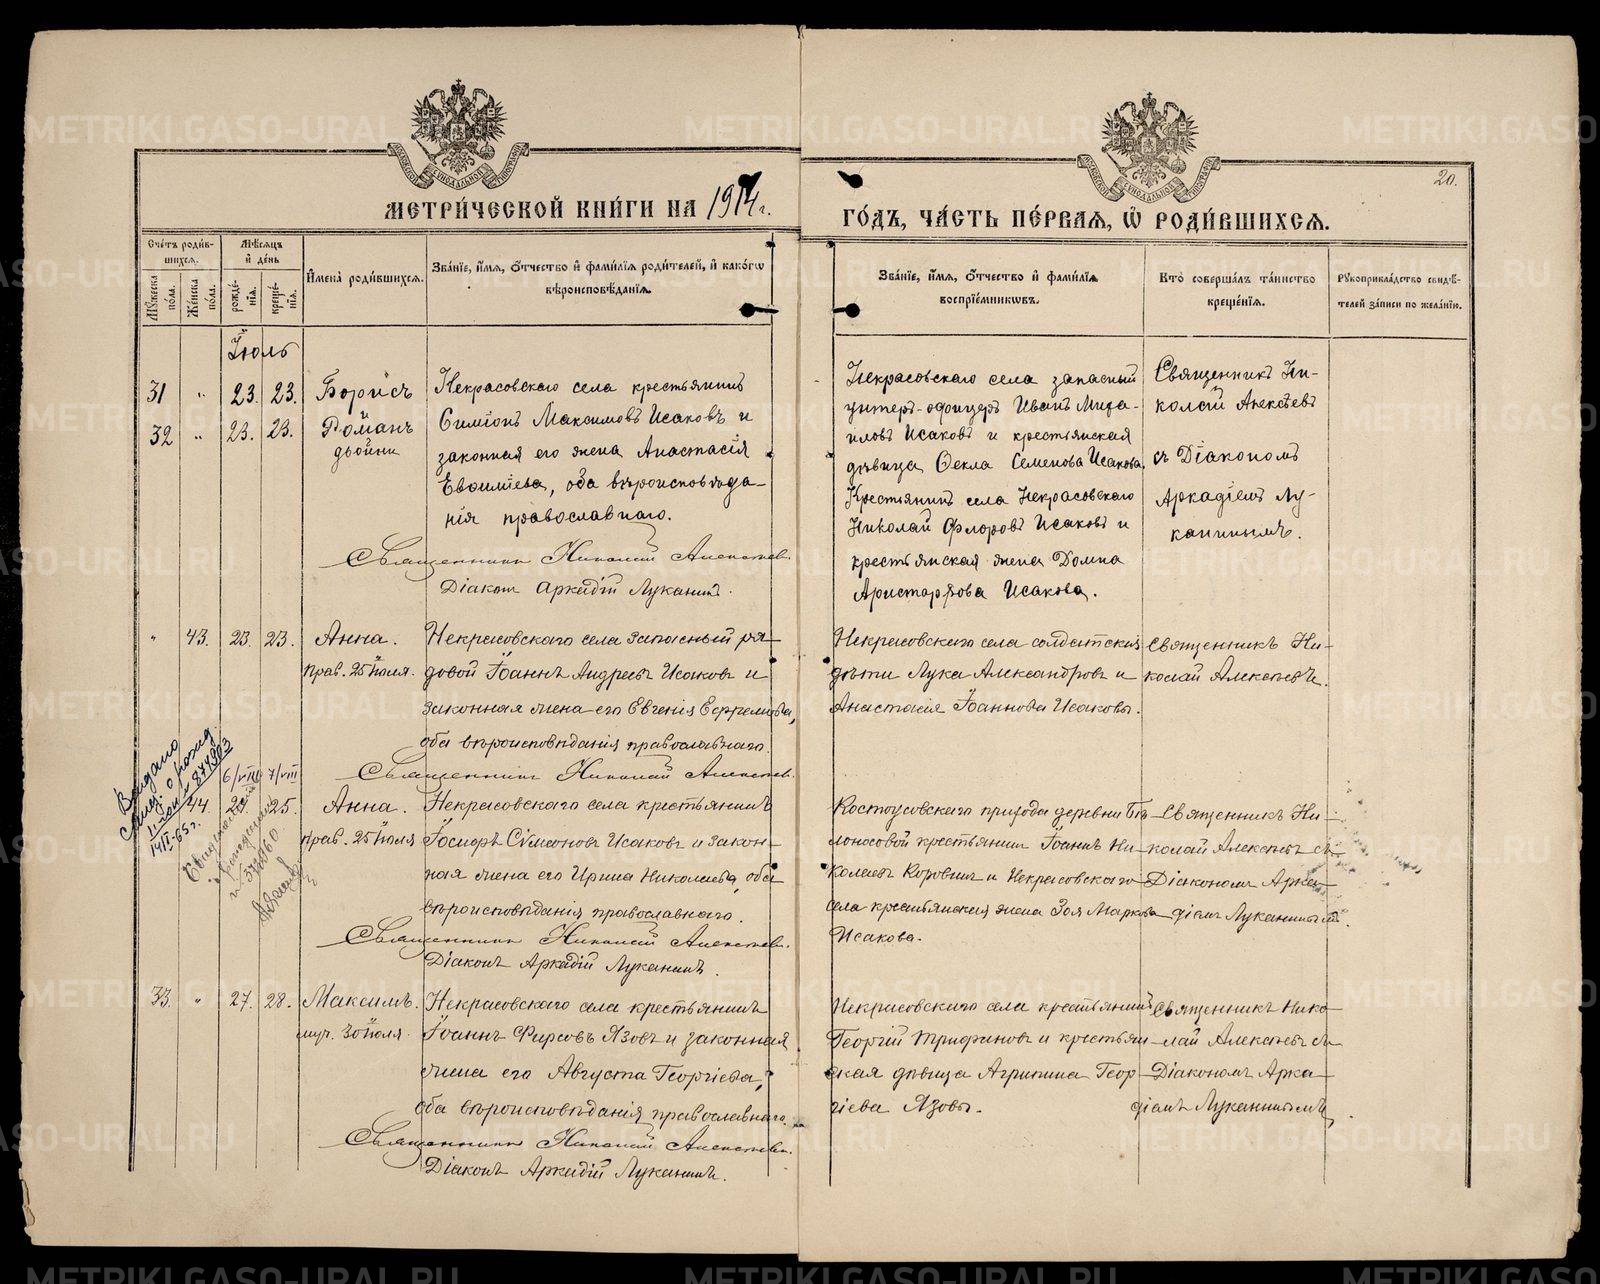 МЕТРИ́ЧЕСКОЙ КНИ́ГИ НА 1914 г.
ГО́ДЪ, ЧА́СТЬ ПЕ́РВАЯ, Ѡ РОДИ́ВШИХСЯ.
20.
Сче́тъ роди́в-
шихся.
Мѣ́сяцъ
и де́нь
Имена̀ роди́вшихся.
Зва́нїе, и́мя, о́тчество и фами́лїя роди́телей, и како́гѡ
вѣроисповѣ́данїя.
Мꙋ́жеска
по́ла.
Же́нска
по́ла.
рожде́-
нїя.
креще́-
нїя.
Зва́нїе, и́мя, о́тчество и фами́лїя
воспрїе́мникѡвъ.
Кто̀ соверша́лъ та́инство
креще́нїя.
Рꙋкоприкла́дство свидѣ́-
телей за́писи по жела́нїю.
Іюль
31 " 23. 23. Борисъ
32 " 23. 23. Романъ
двойни
Некрасовскаго села крестьянинъ
Симіонъ Максимовъ Исаковъ и
законная его жена Анастасія
Евѳиміева, оба вѣроисповѣда-
нія православнаго.
Священникъ Николай Алексѣевъ.
Діаконъ Аркадій Луканинъ.
Некрасовскаго села запасный
унтеръ-офицеръ Иванъ Миха-
иловъ Исаковъ и крестьянская
дѣвица Ѳекла Семенова Исакова.
Крестьянинъ села Некрасовскаго
Николай Флоровъ Исаковъ и
крестьянская жена Домна
Аристархова Исакова.
Священникъ Ни-
колай Алексѣевъ
съ Діакономъ
Аркадіемъ Лу-
канинымъ.
" 43. 23. 23. Анна.
прав. 25 Іюля.
Некрасовскаго села запасный ря-
довой Іоаннъ Андреевъ Исаковъ и
законная жена его Евгенія Ефремова,
оба вѣроисповѣданія православнаго.
Священникъ Николай Алексѣевъ.
Некрасовскаго села солдатскія
дѣти Лука Александровъ и
Анастасія Іоаннова Исаковы.
Священникъ Ни-
колай Алексѣевъ.
Выдано
свид. о рожд
874903
14/II-65 г.
6/VIII 7/VIII
44 25. Анна.
прав. 25 Іюля
Некрасовскаго села крестьянинъ
Іосифъ Сумеоновъ Исаковъ и закон-
ная жена его Ирина Николаева, оба
вѣроисповѣданія православнаго.
Священникъ Николай Алексѣевъ.
Діаконъ Аркадій Луканинъ.
Костоусовскаго прихода деревни Бѣ-
лоносовой крестьянинъ Іоаннъ Ни-
колаевъ Коровинъ и Некрасовскаго
села крестьянская жена Зоя Маркова
Исакова.
Священникъ Ни-
колай Алексѣевъ съ
Діакономъ Арка-
діемъ Луканинымъ.
33. " 27. 28. Максимъ.
муч. 30 Іюля.
Некрасовскаго села крестьянинъ
Іоаннъ Фирсовъ Язовъ и законная
жена его Августа Георгіева,
оба вѣроисповѣданія православнаго.
Священникъ Николай Алексѣевъ.
Діаконъ Аркадій Луканинъ.
Некрасовскаго села крестьянинъ
Георгій Трифановъ и крестьян-
ская дѣвица Агрипина Геор-
гіева Язовы.
Священникъ Нико-
лай Алексѣевъ съ
Діакономъ Арка-
діемъ Луканинымъ.